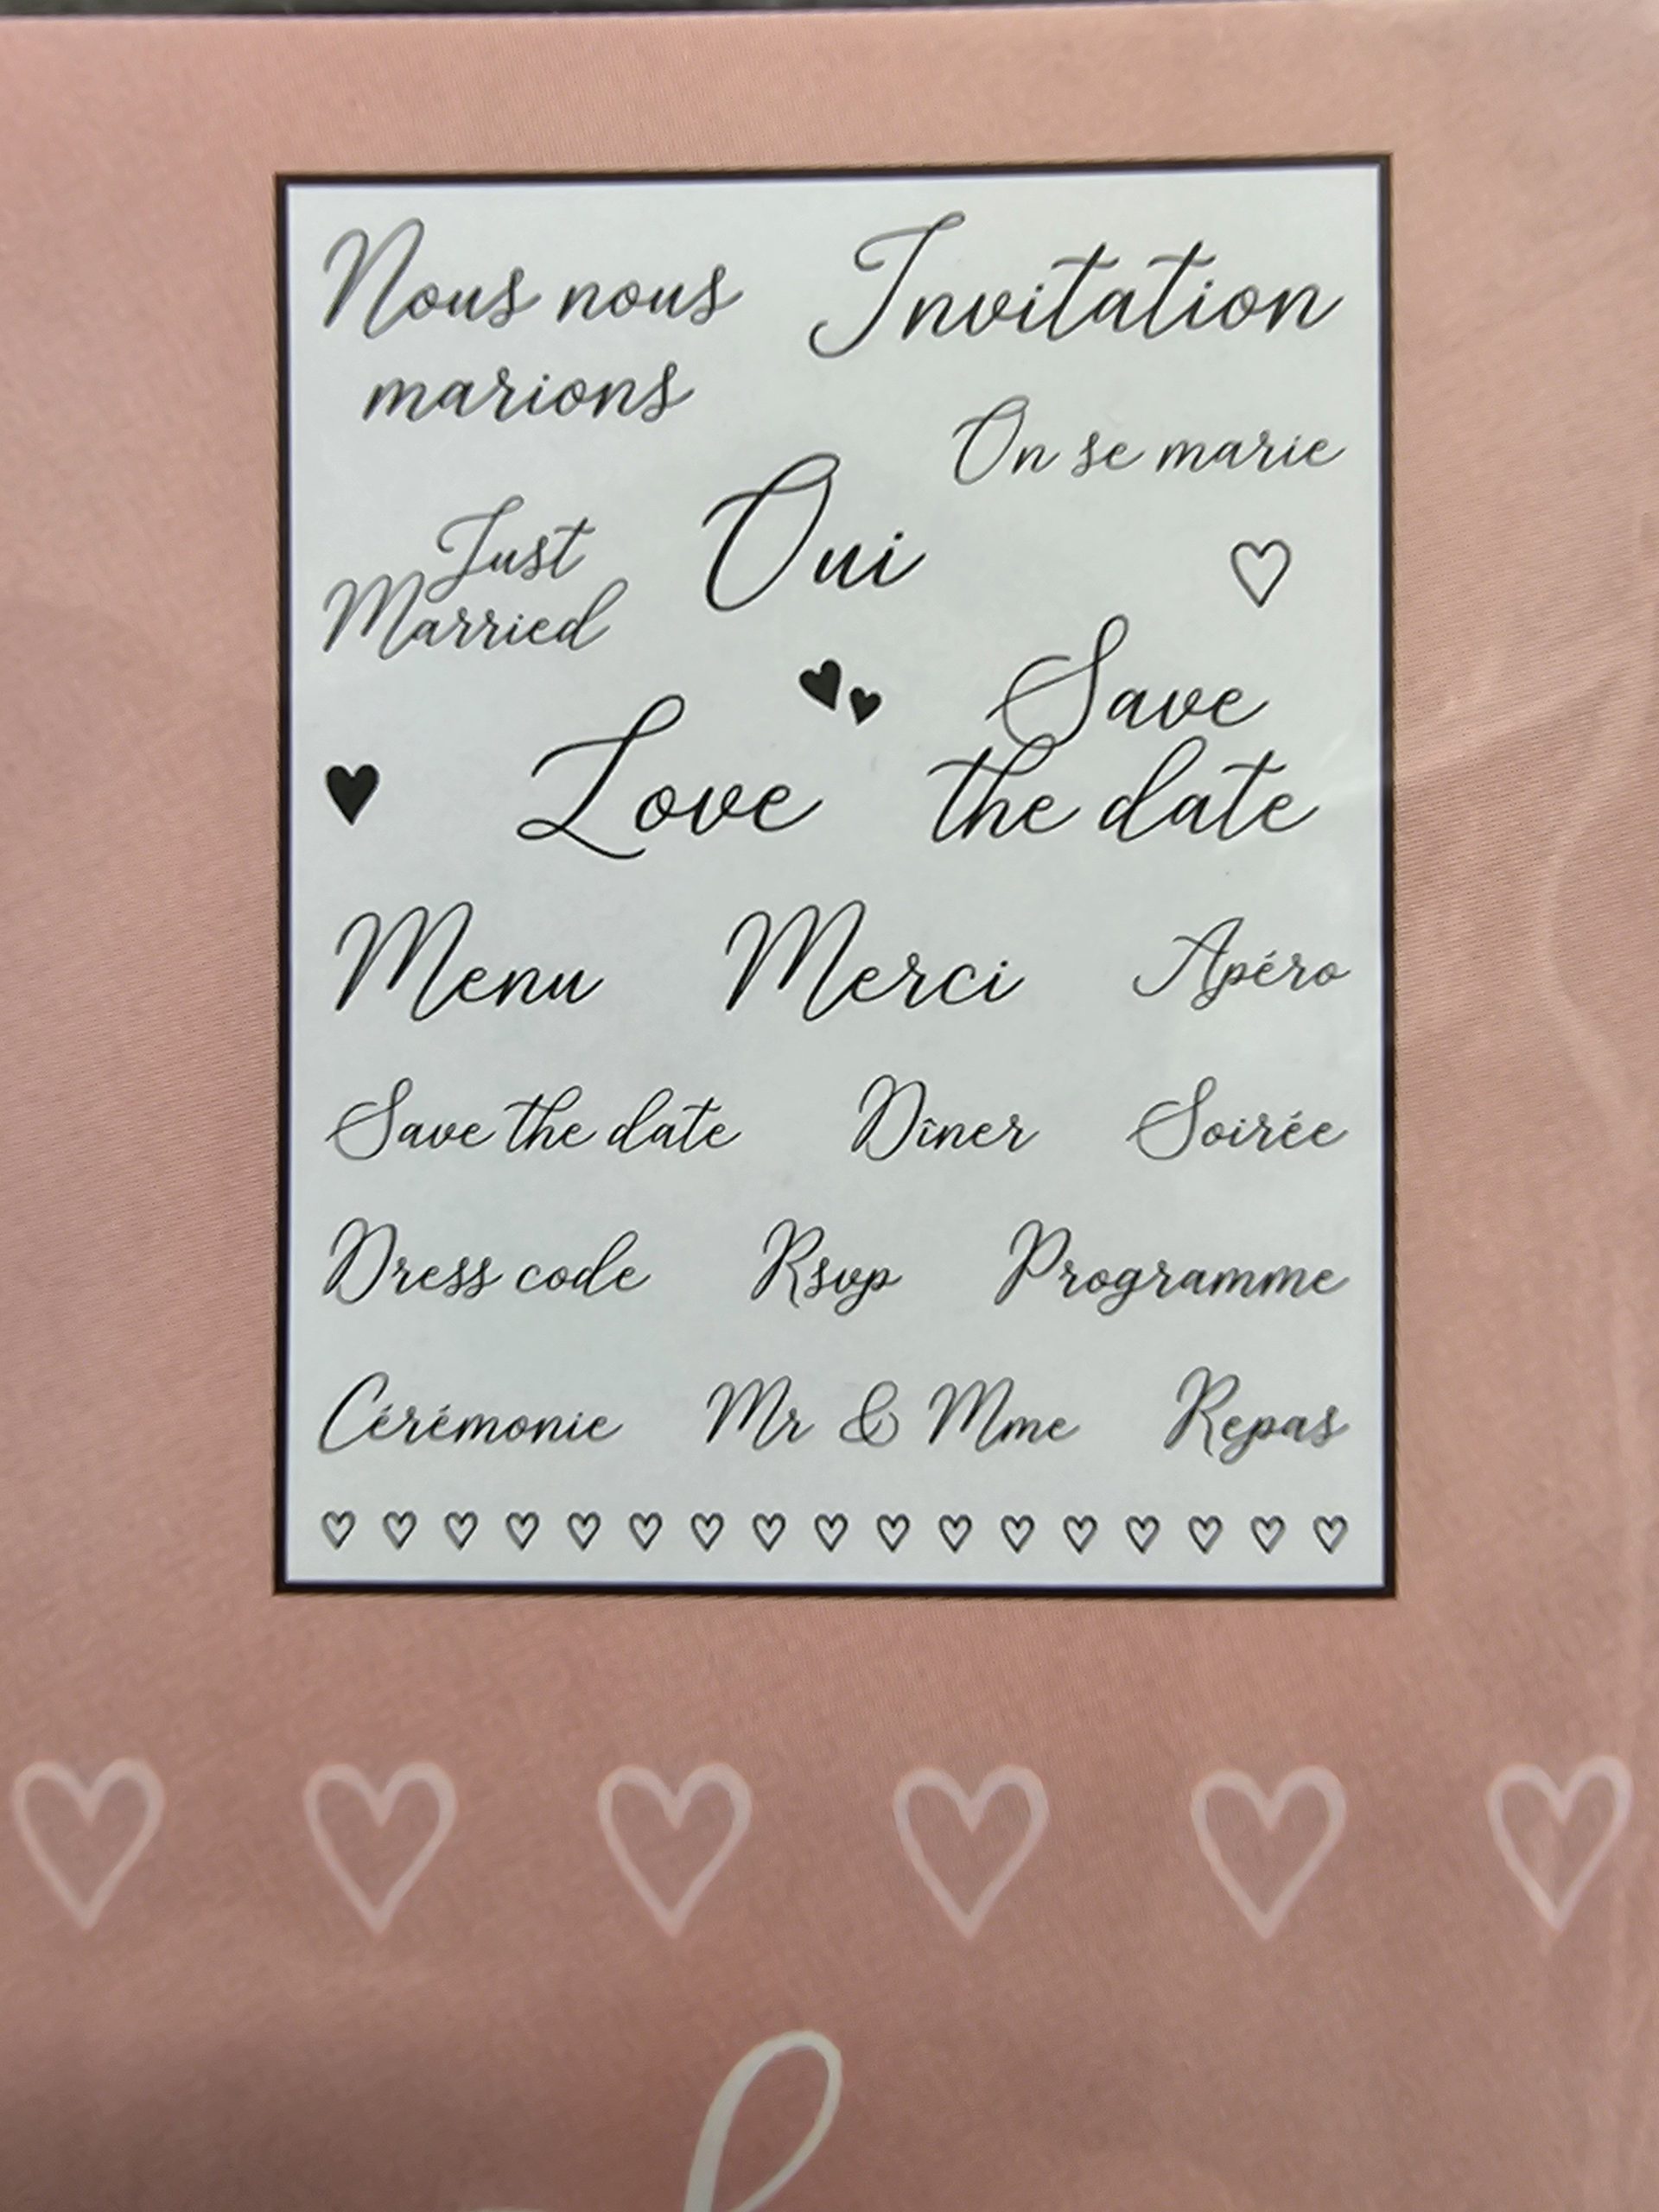 Nous nous
marions
Invitation
On se marie
Just
Married
Oui
Save
the date
Love
Menu Merci Apéro
Save the date Dîner Soirée
Dress code Rsvp Programme
Cérémonie Mr & Mme Repas